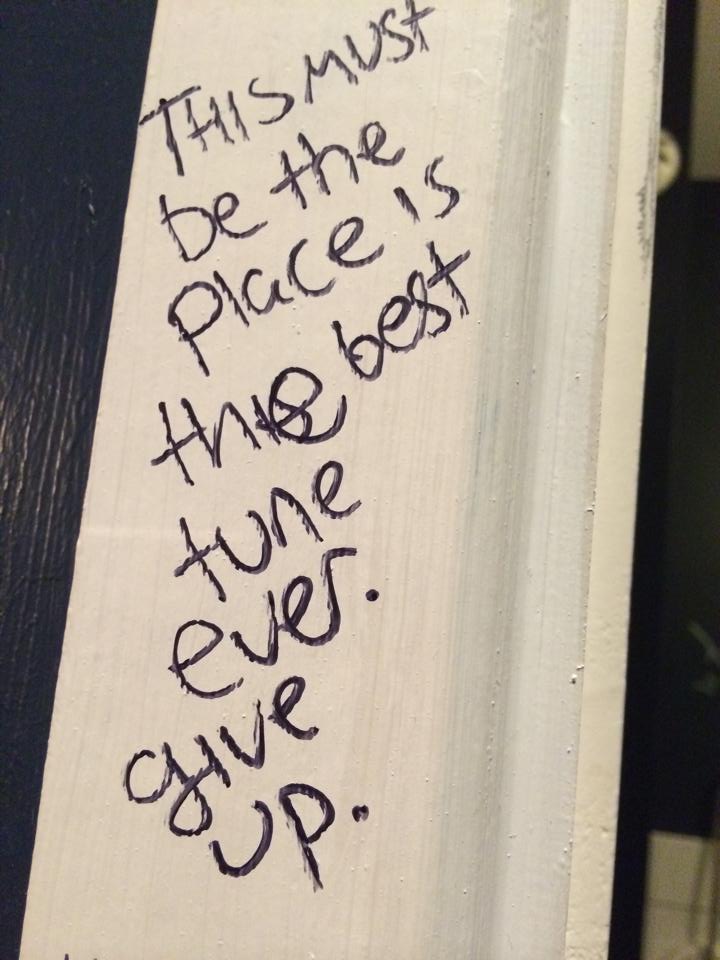 THIS MUST
be the
Place is
the best
tune
ever.
give
up.